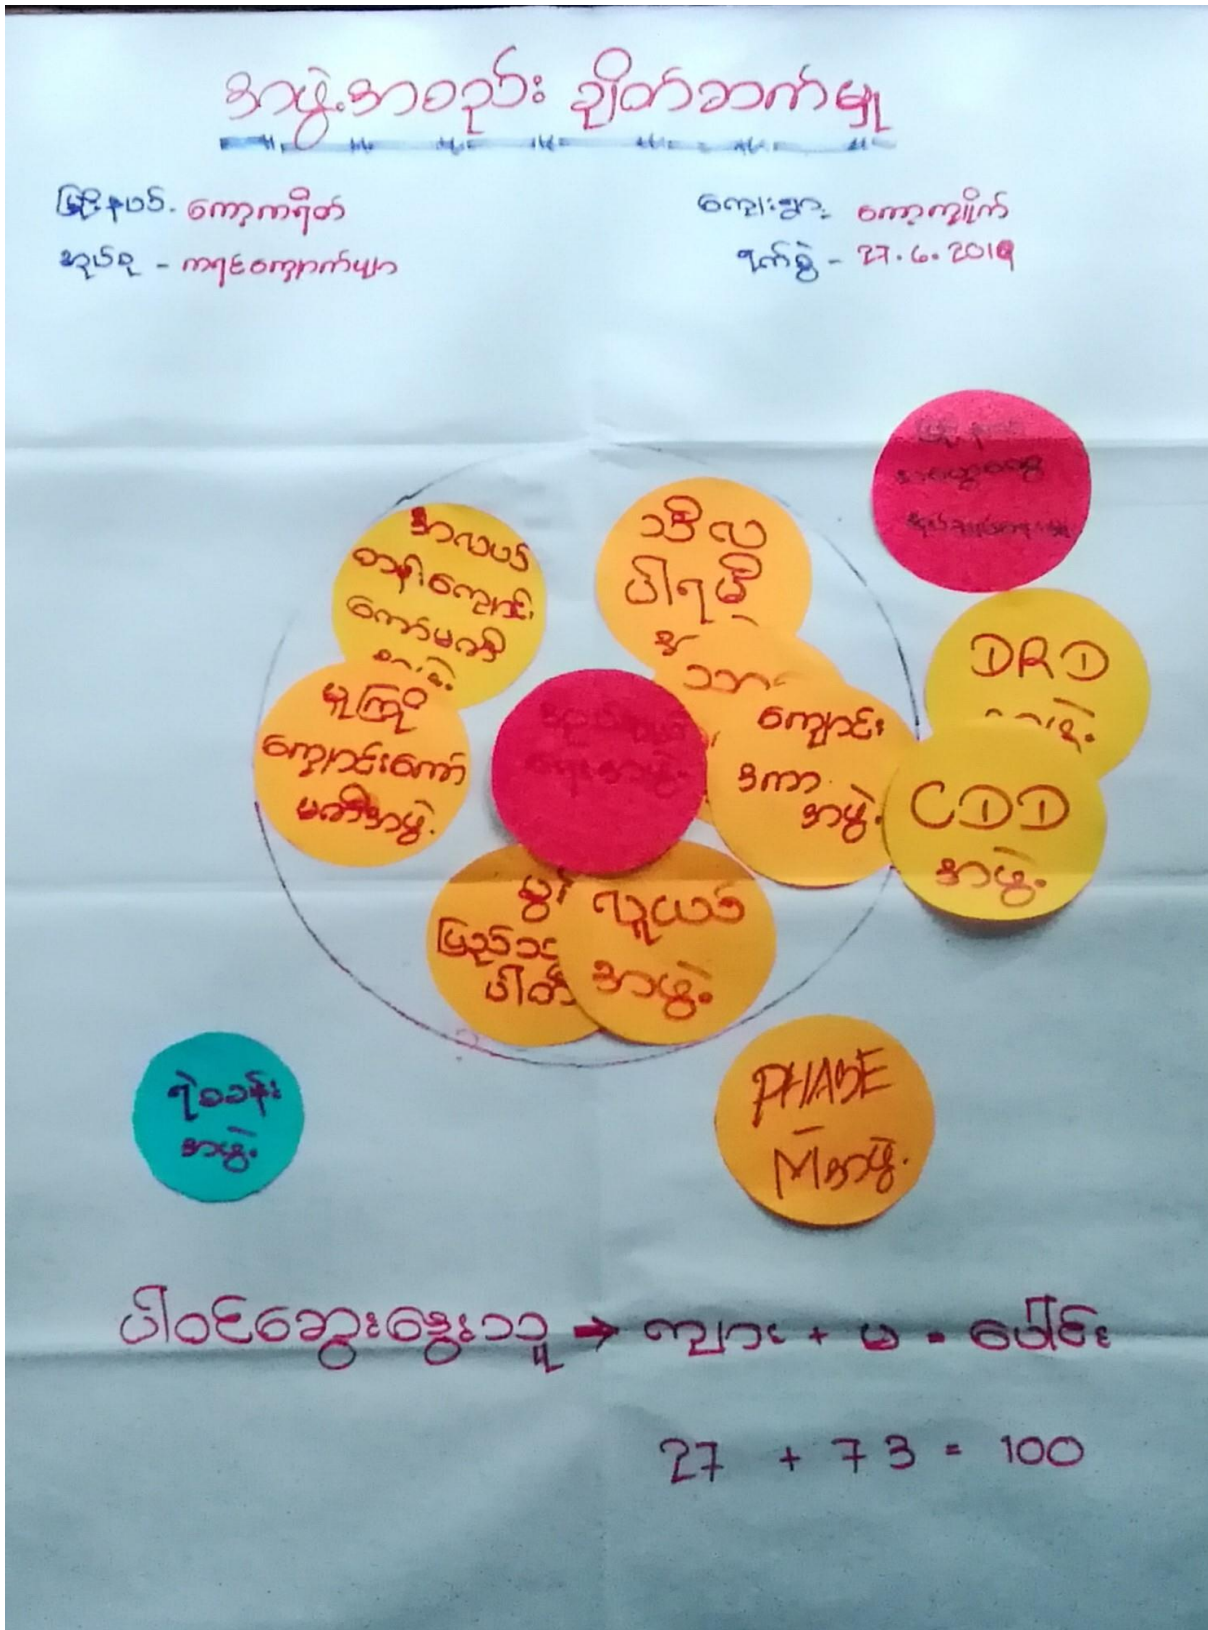 အဖွဲ့အစည်း ချိတ်ဆက်မှု
မြို့နယ်. ကော့ကရိတ်
ကျေးရွာ. ကော့ကျိုက်
အုပ်စု - ကရင်ကျောက်ဖျာ
ရက်စွဲ - 27.6.2019
မြို့နယ်
အထွေထွေ
အလယ်
တန်းကျောင်း
ကော်မတီ
သီလ
ပါရမီ
DRD
မူကြို
ကျောင်းကော်
မတီအဖွဲ့.
ရေးအဖွဲ့.
ကျောင်း
ဒကာ
အဖွဲ့.
CDD
အဖွဲ့.
မွန်
ပြည်သ
ပါတီ
လူငယ်
အဖွဲ့.
ရဲစခန်း
အဖွဲ့.
PHASE
- 
အဖွဲ့.
ပါဝင်ဆွေးနွေးသူ → ကျား + မ = ပေါင်း
27 + 73 = 100